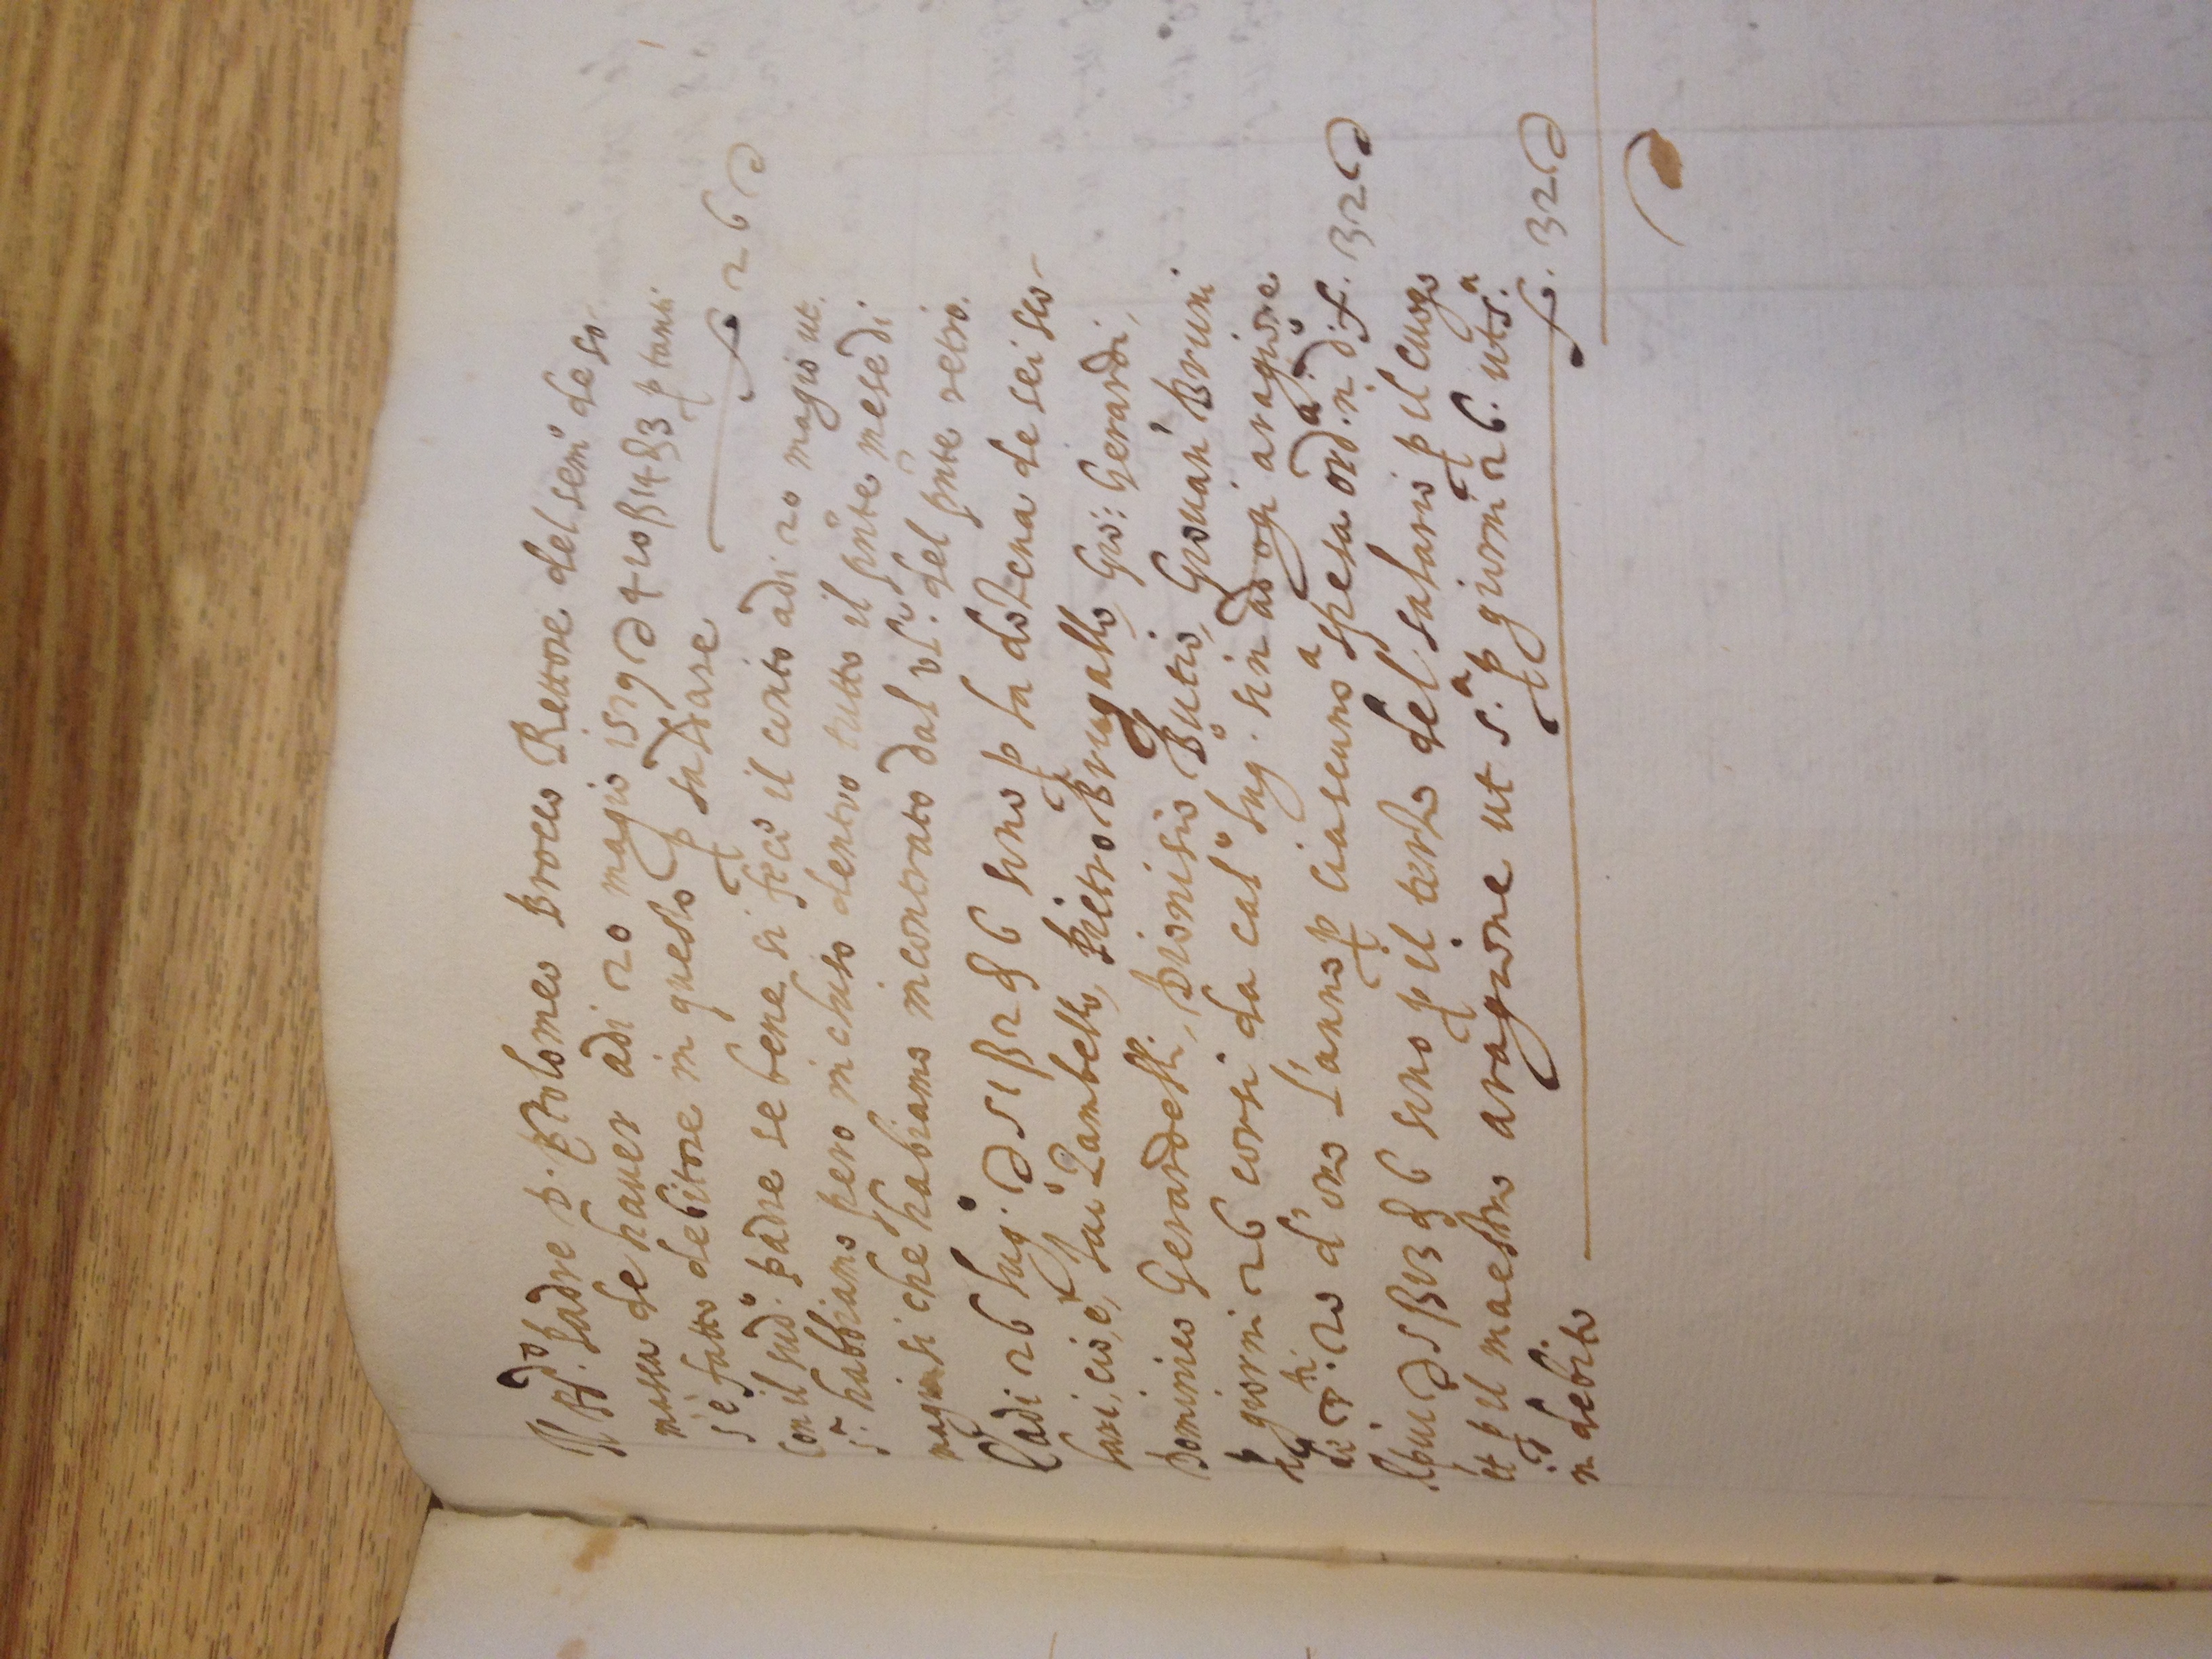 Il R.do Padre p. Ptolomeo Brocco Rettore del sem.o de so-
masca de haver adi 20 magio 1579 d 4 10 ß 14 & 3 p tanti
s'è fatto debitore in questo p saldare f 26 d
con il sud.o padre se bene si fece il conto adi 20 magio ut.
s.a habbiamo pero incluso dentro tutto il pñte mese di
magio si che habbiamo incontrato dal vl.o del pñte retro.
E adi 26 lug.o d 51 ß 2 & 6 sono p la dozena de sei sco-
lari, cioè, Zambello, Pietro Brugallo, Gio: Gerardi,
Dominico Gerardelli, Dionisio Butio, Giouan Bruni
p giorni 26 corsi da cal.o lug. sin ad ogi a ragione
di 20 d'oro l'anno p ciascuno a spesa ord.a f. 32 d
E piu d 5 ß 13 & 6 sono p il terzo del salario p il cuogo
et p il maestro a ragione ut s.a p giorni 26. ut s.a f. 32 d
in debito